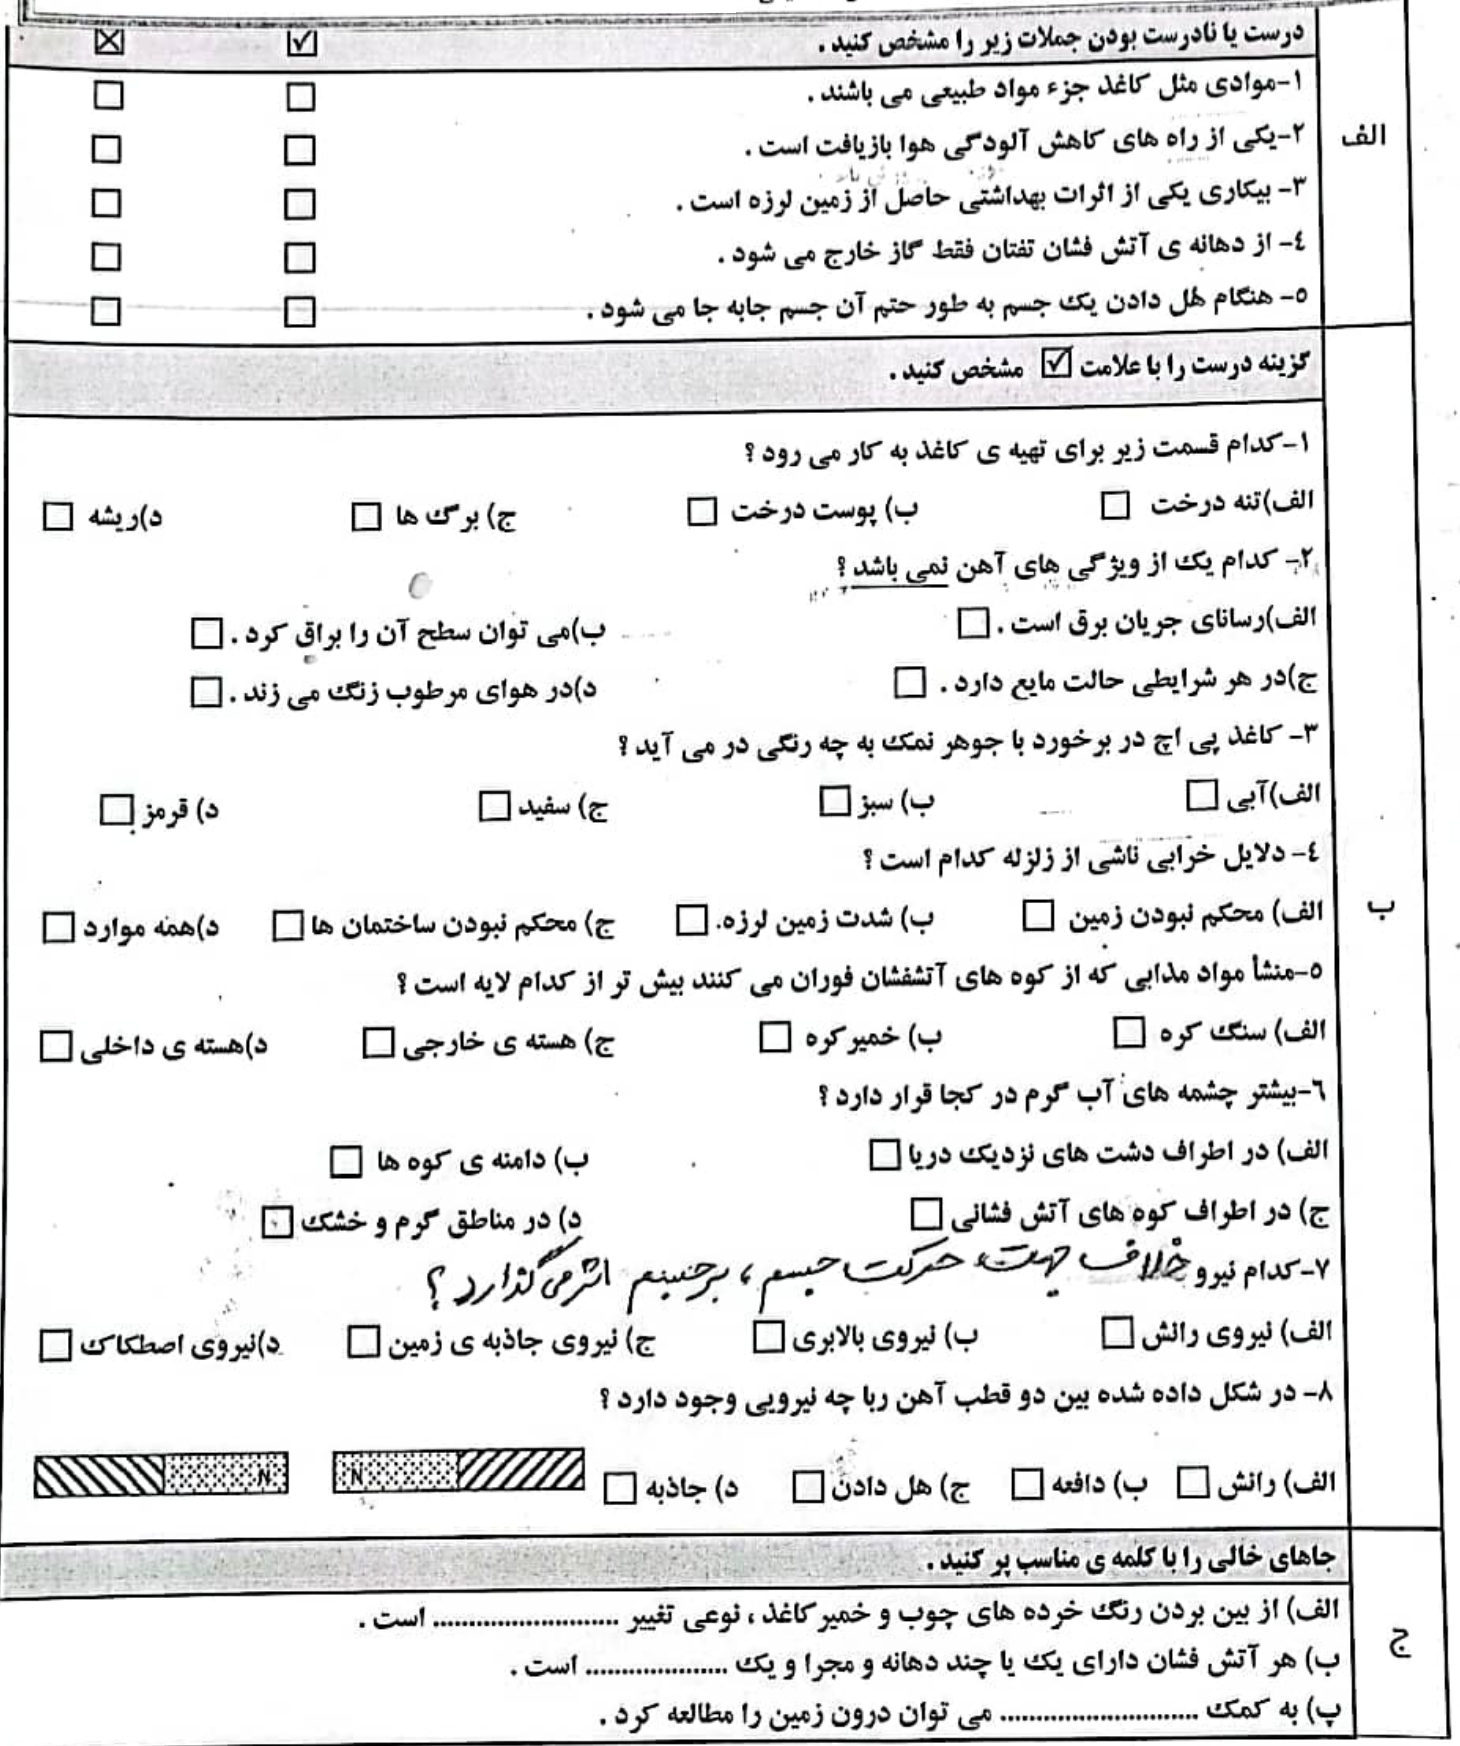 درست یا نادرست بودن جملات زیر را مشخص کنید .
الف
۱-موادی مثل کاغذ جزء مواد طبیعی می باشند .
۲-یکی از راه های کاهش آلودگی هوا بازیافت است .
۳- بیکاری یکی از اثرات بهداشتی حاصل از زمین لرزه است .
٤- از دهانه ی آتش فشان تفتان فقط گاز خارج می شود .
٥- هنگام هُل دادن یک جسم به طور حتم آن جسم جابه جا می شود .
گزینه درست را با علامت ☑ مشخص کنید .
ب
۱-کدام قسمت زیر برای تهیه ی کاغذ به کار می رود ؟
الف)تنه درخت ب) پوست درخت ج) برگ ها د)ریشه
۲- کدام یک از ویژگی های آهن نمی باشد ؟
الف)رسانای جریان برق است . ب)می توان سطح آن را براق کرد .
ج)در هر شرایطی حالت مایع دارد . د)در هوای مرطوب زنگ می زند .
۳- کاغذ پی اچ در برخورد با جوهر نمک به چه رنگی در می آید ؟
الف)آبی ب) سبز ج) سفید د) قرمز
٤- دلایل خرابی ناشی از زلزله کدام است ؟
الف) محکم نبودن زمین ب) شدت زمین لرزه. ج) محکم نبودن ساختمان ها د)همه موارد
٥-منشأ مواد مذابی که از کوه های آتشفشان فوران می کنند بیش تر از کدام لایه است ؟
الف) سنگ کره ب) خمیرکره ج) هسته ی خارجی د)هسته ی داخلی
٦-بیشتر چشمه های آب گرم در کجا قرار دارد ؟
الف) در اطراف دشت های نزدیک دریا ب) دامنه ی کوه ها
ج) در اطراف کوه های آتش فشانی د) در مناطق گرم و خشک
۷-کدام نیرو خلاف جهت حرکت جسم ، بر جسم اثر می گذارد ؟
الف) نیروی رانش ب) نیروی بالابری ج) نیروی جاذبه ی زمین د)نیروی اصطکاک
۸- در شکل داده شده بین دو قطب آهن ربا چه نیرویی وجود دارد ؟
الف) رانش ب) دافعه ج) هل دادن د) جاذبه N N
جاهای خالی را با کلمه ی مناسب پر کنید .
ج
الف) از بین بردن رنگ خرده های چوب و خمیرکاغذ ، نوعی تغییر ......................... است .
ب) هر آتش فشان دارای یک یا چند دهانه و مجرا و یک ................... است .
پ) به کمک ........................... می توان درون زمین را مطالعه کرد .